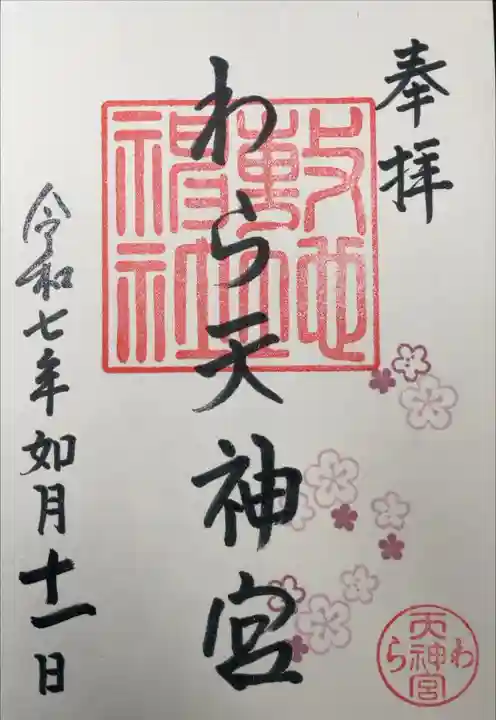 奉拝
わら天神宮
令和七年如月十一日
敷地神社
わら天神宮